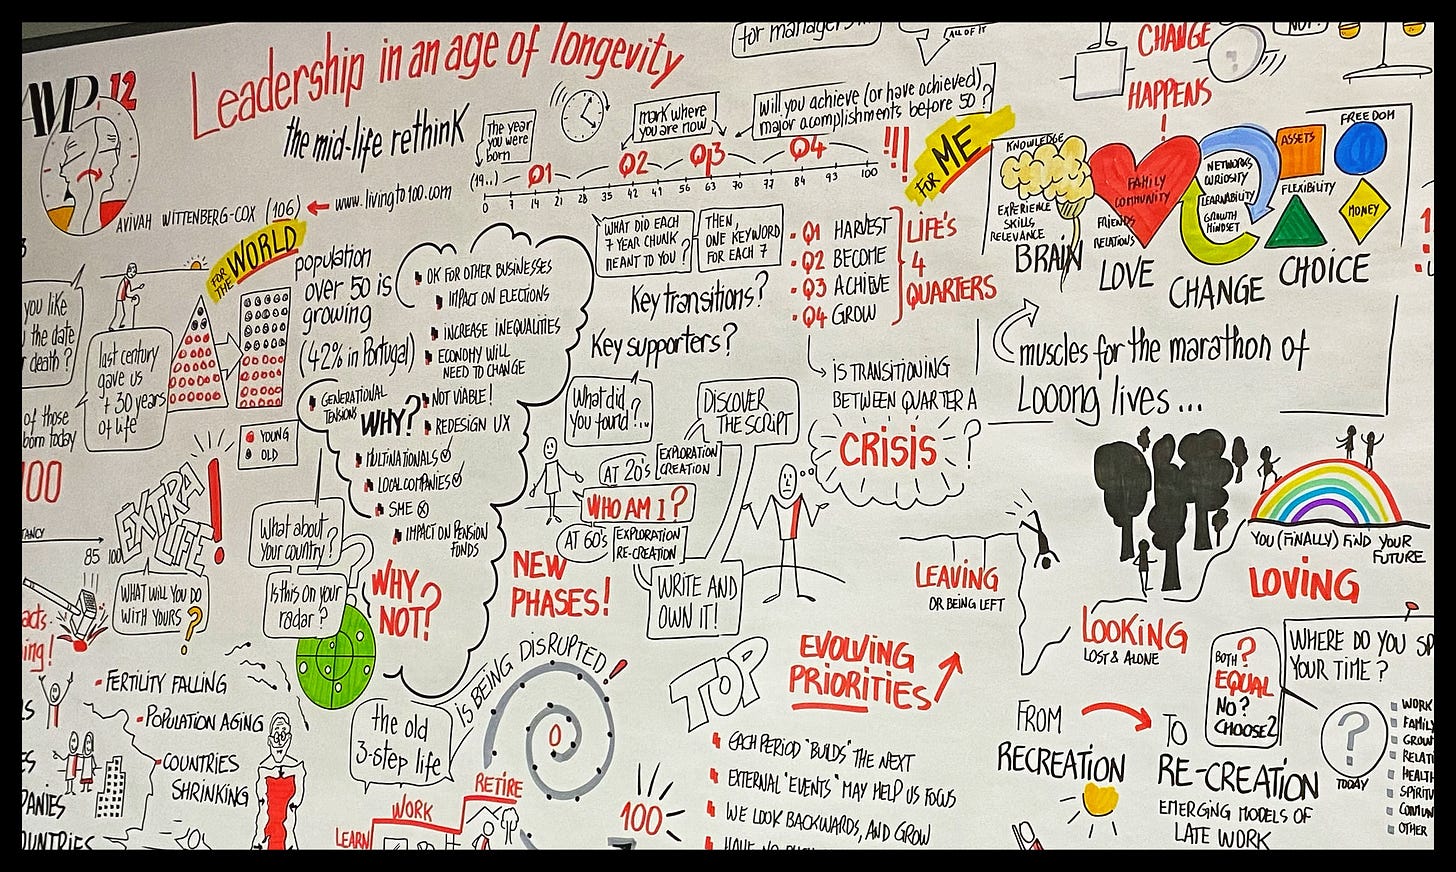 AMP 12
Leadership in an age of longevity
the mid-life rethink
AVIVAH WITTENBERG-COX (106) ← www.livingto100.com
for managers
ALL OF IT
CHANGE
HAPPENS
!
NOT?
The year
you were
born
mark where
you are now
will you achieve (or have achieved)
major acomplishments before 50?
!!!
FOR ME
Q1 Q2 Q3 Q4
(19..)
0 7 14 21 28 35 42 49 56 63 70 77 84 93 100
WHAT DID EACH
7 YEAR CHUNK
MEANT TO YOU?
THEN,
ONE KEYWORD
FOR EACH 7
Key transitions?
Key supporters?
• Q1 HARVEST
• Q2 BECOME
• Q3 ACHIEVE
• Q4 GROW
LIFE'S
4
QUARTERS
IS TRANSITIONING
BETWEEN QUARTER A
CRISIS ?
KNOWLEDGE
EXPERIENCE
SKILLS
RELEVANCE
BRAIN
FAMILY
COMMUNITY
FRIENDS
RELATIONS
LOVE
NETWORKS
CURIOSITY
LEARNABILITY
GROWTH
MINDSET
CHANGE
ASSETS
FREEDOM
FLEXIBILITY
MONEY
CHOICE
muscles for the marathon of
Looong lives...
FOR
THE WORLD
population
over 50 is
growing
(42% in Portugal)
YOUNG
OLD
you like
the date
death?
last century
gave us
+ 30 years
of life
of those
born today
100
85 100
EXTRA
LIFE!
WHAT WILL YOU DO
WITH YOURS?
OK FOR OTHER BUSINESSES
IMPACT ON ELECTIONS
INCREASE INEQUALITIES
ECONOMY WILL
NEED TO CHANGE
NOT VIABLE!
REDESIGN UX
GENERATIONAL
TENSIONS
WHY?
MULTINATIONALS
LOCAL COMPANIES
SME
IMPACT ON PENSION
FUNDS
What about
your country?
Is this on your
radar?
WHY
NOT?
What did
you found?..
DISCOVER
THE SCRIPT
AT 20's
EXPLORATION
CREATION
WHO AM I?
AT 60's
EXPLORATION
RE-CREATION
NEW
PHASES!
WRITE AND
OWN IT!
LEAVING
OR BEING LEFT
LOOKING
LOST & ALONE
YOU (FINALLY) FIND YOUR
FUTURE
LOVING
- FERTILITY FALLING
- POPULATION AGING
- COUNTRIES
SHRINKING
the old
3-step life
IS BEING DISRUPTED!
LEARN
WORK
RETIRE
0
100
TOP
EVOLVING
PRIORITIES
EACH PERIOD "BUILDS" THE NEXT
EXTERNAL "EVENTS" MAY HELP US FOCUS
WE LOOK BACKWARDS, AND GROW
FROM
RECREATION
TO
RE-CREATION
EMERGING MODELS OF
LATE WORK
BOTH?
EQUAL
NO?
CHOOSE 2
WHERE DO YOU SP
YOUR TIME?
?
TODAY
WORK
FAMILY
GROW
RELATI
HEALTH
SPIRITU
COMMUN
OTHER